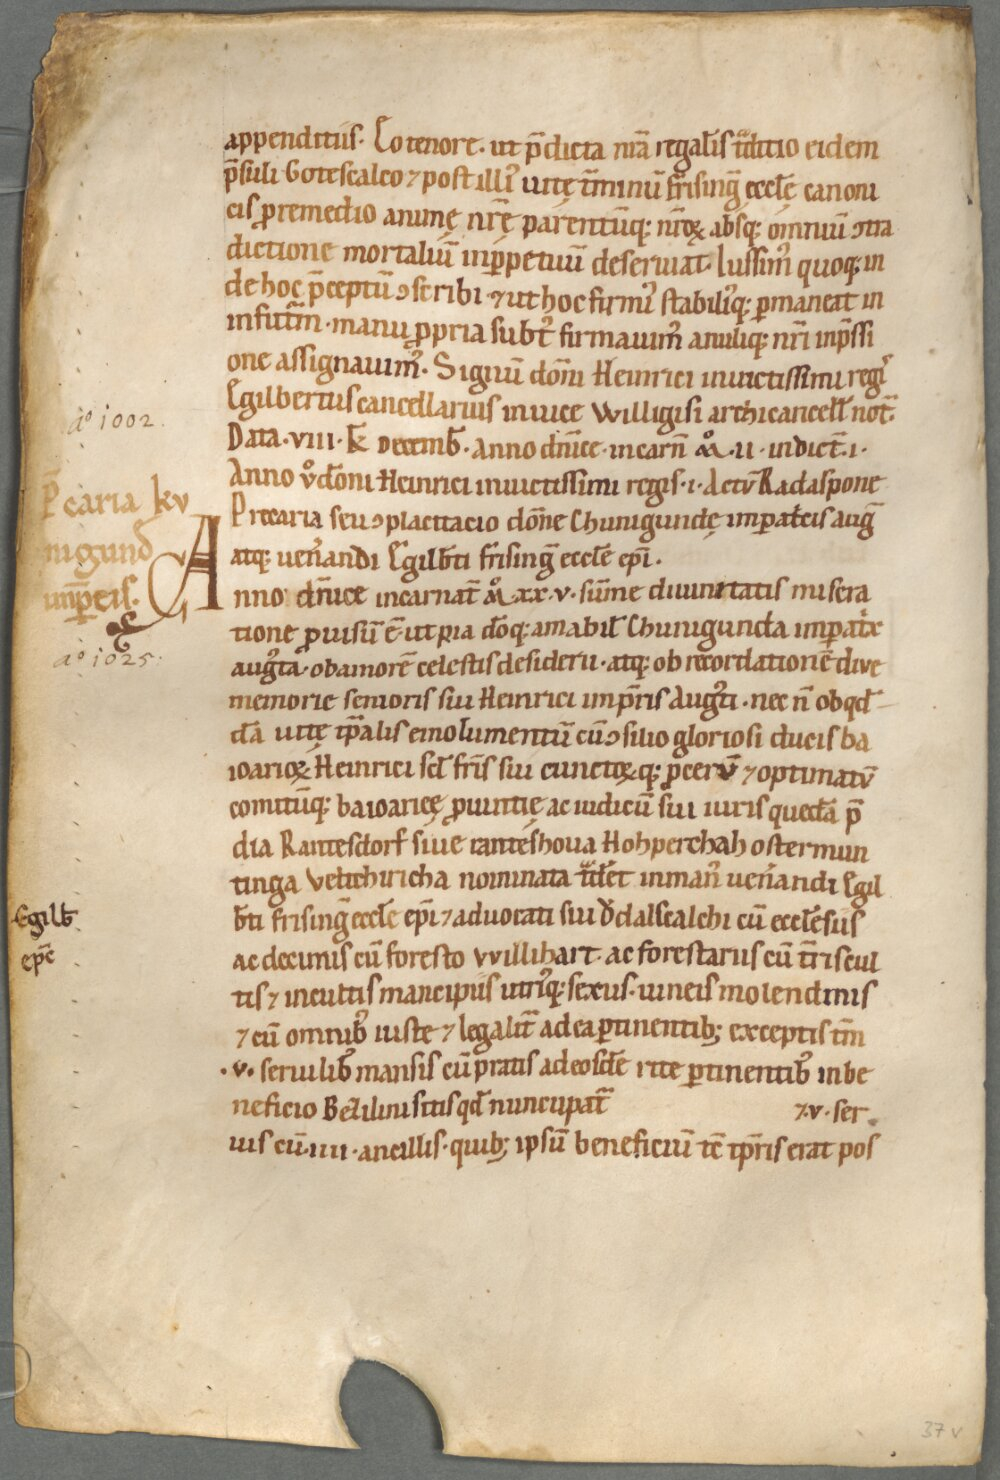 appenditiis. Eo tenore. ut p̄dicta nr̄a regal̄is t̄ditio eidem
p̄suli Gotescalco ⁊ post illi᾽ uitę t̄minū frisinḡ ęccl̄ę canoni
cis ꝓ remedio animę nr̄ę parentūq; nr̄oꝝ absq; omniū ↄtra
dictione mortaliū inꝑpetuū deseruiat. Iussim᾽ quoq; in
de hoc p̄ceptū ↄscribi ⁊ ut hoc firmi᾽ stabiliq᾽; ꝑmaneat in
infut̄m. manu ꝓpria subt᾽ firmauim᾽ anuliq; nr̄i inp̄ssi
one assignauim᾽. Signū dōm̄i Heinrici inuictissimi regi᾽
Egilbertus cancellarius in uice Willigisi archicancell̄ not̄.
Data. VIII. kł Decemb̄. anno dn̄ice. incarn̄ M̊. II. indict̄. I.
Anno v᾽ dōni Heinrici inuictissimi regis. I. Actū Radaspone
Precaria seu ↄplacitacio dōne Chunigundę imperatcis aug̃
atq; uen̄andi Egilb̄ti frising̃ eccl̄e epi̅.
Anno dn̄ice incarnat̄ M̊. XX. V. sūme diuinitatis misera
tione ꝓuisū ē. ut pia dōq; amabil̄ Chunigunda impat̄x
aug᾽ta. ob amorē celestis desiderii. atq; ob recordationē diue
memorie senioris sui Heinrici imp̄ris augᵗi. nec n̄ ob qđ
dā uitę tp̄alis emolumentū cū ↄsilio gloriosi ducis ba
ioarioꝝ Heinrici scł fr̄is sui cunctoꝝq; ꝓcerū ⁊ optimatū
comitūq; baioaricę ꝓuintię ac iudicū sui iuris quedā p̄
dia Rantesdorf siue ranteshoua Hohperchah ostermun
tinga Vetichiricha nominata t̄d̄et in man᾽ uen̄andi Egil
b̄ti frising̃ eccl̄e epi̅ ⁊ aduocati sui Ǒdalscalchi cū eccl̄esiis
ac decimis cū foresto Willihart. ac forestariis cū t̄ris cul
tis ⁊ incultis mancipiis utriq᾽; sexus. uineis molendinis
⁊ cū omnib᾽ iuste ⁊ legalit̄ ad ea ꝑtinentib; exceptis tm̄
. V. seruilib᾽ mansis cū pratis ad eosd̄e rite ꝑtinentib᾽ in be
neficio Bezilini sitis qđ nuncupat᾽ ⁊. V. ser
uis cū. IIII. ancillis. quib; ipsū beneficiū tc̄ tp̄ris erat pos
aº 1002.
P̄caria kv
nigund̄
imp̄tcis.
aº 1025.
Egilb̄
epc̄
37 v